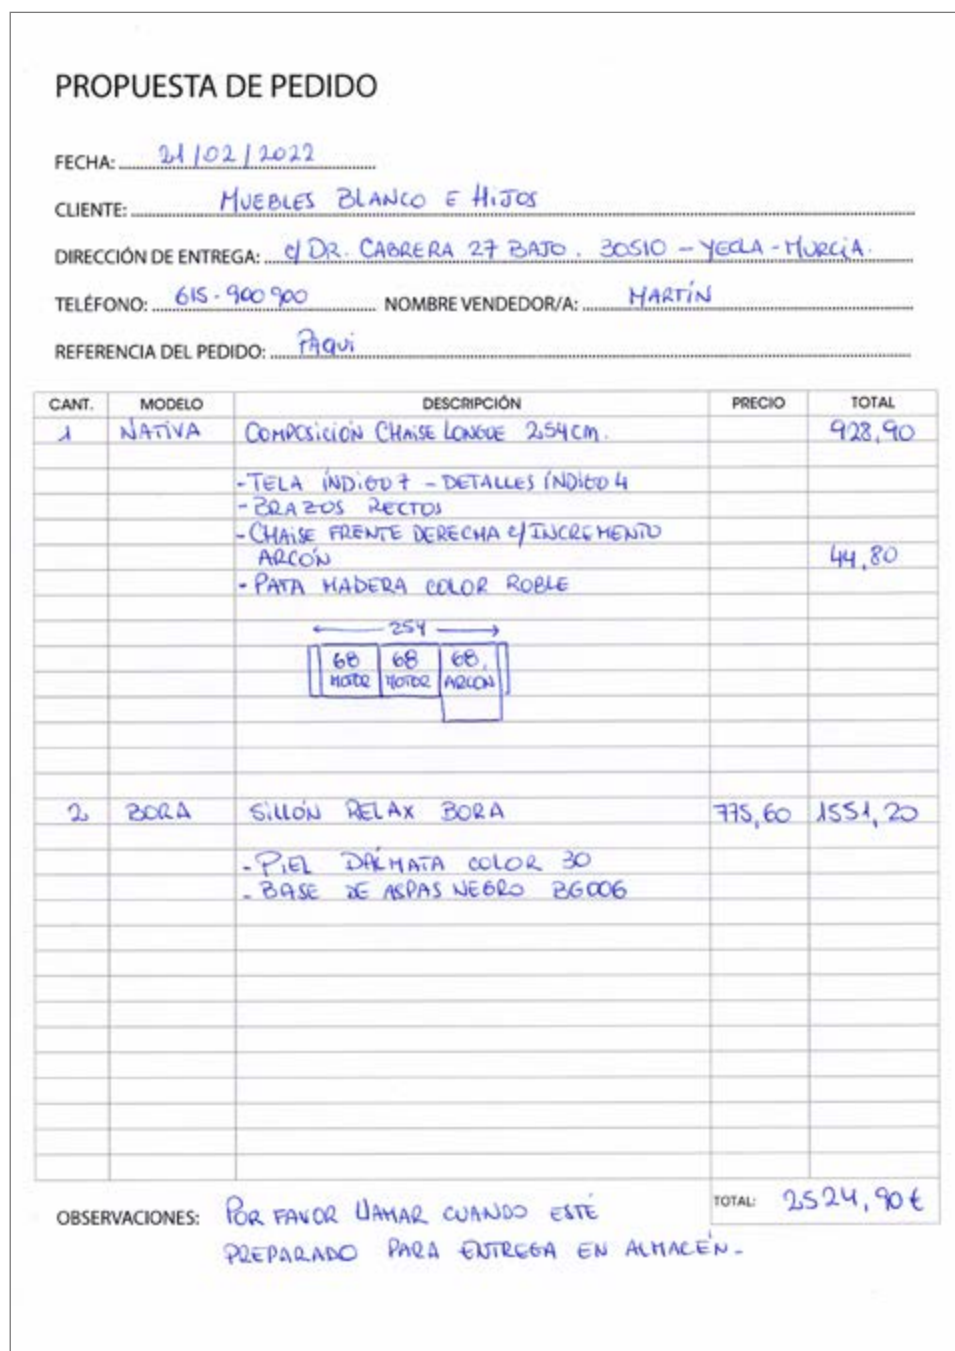 PROPUESTA DE PEDIDO
FECHA: 21/02/2022
CLIENTE: MUEBLES BLANCO E HIJOS
DIRECCIÓN DE ENTREGA: C/ DR. CABRERA 27 BAJO. 30510 - YECLA - MURCIA.
TELÉFONO: 615-900900 NOMBRE VENDEDOR/A: MARTÍN
REFERENCIA DEL PEDIDO: PAQUI
CANT. MODELO DESCRIPCIÓN PRECIO TOTAL
1 NATIVA COMPOSICIÓN CHAISE LONGUE 254CM. 928,90
-TELA ÍNDIGO 7 - DETALLES ÍNDIGO 4
-BRAZOS RECTOS
-CHAISE FRENTE DERECHA C/ INCREMENTO
ARCÓN 44,80
-PATA MADERA COLOR ROBLE
254
68 68 68
MOTOR MOTOR ARCON
2 BORA SILLÓN RELAX BORA 775,60 1551,20
-PIEL DÁLMATA COLOR 30
-BASE DE ASPAS NEGRO BG006
TOTAL: 2524,90€
OBSERVACIONES: POR FAVOR LLAMAR CUANDO ESTÉ
PREPARADO PARA ENTREGA EN ALMACÉN-